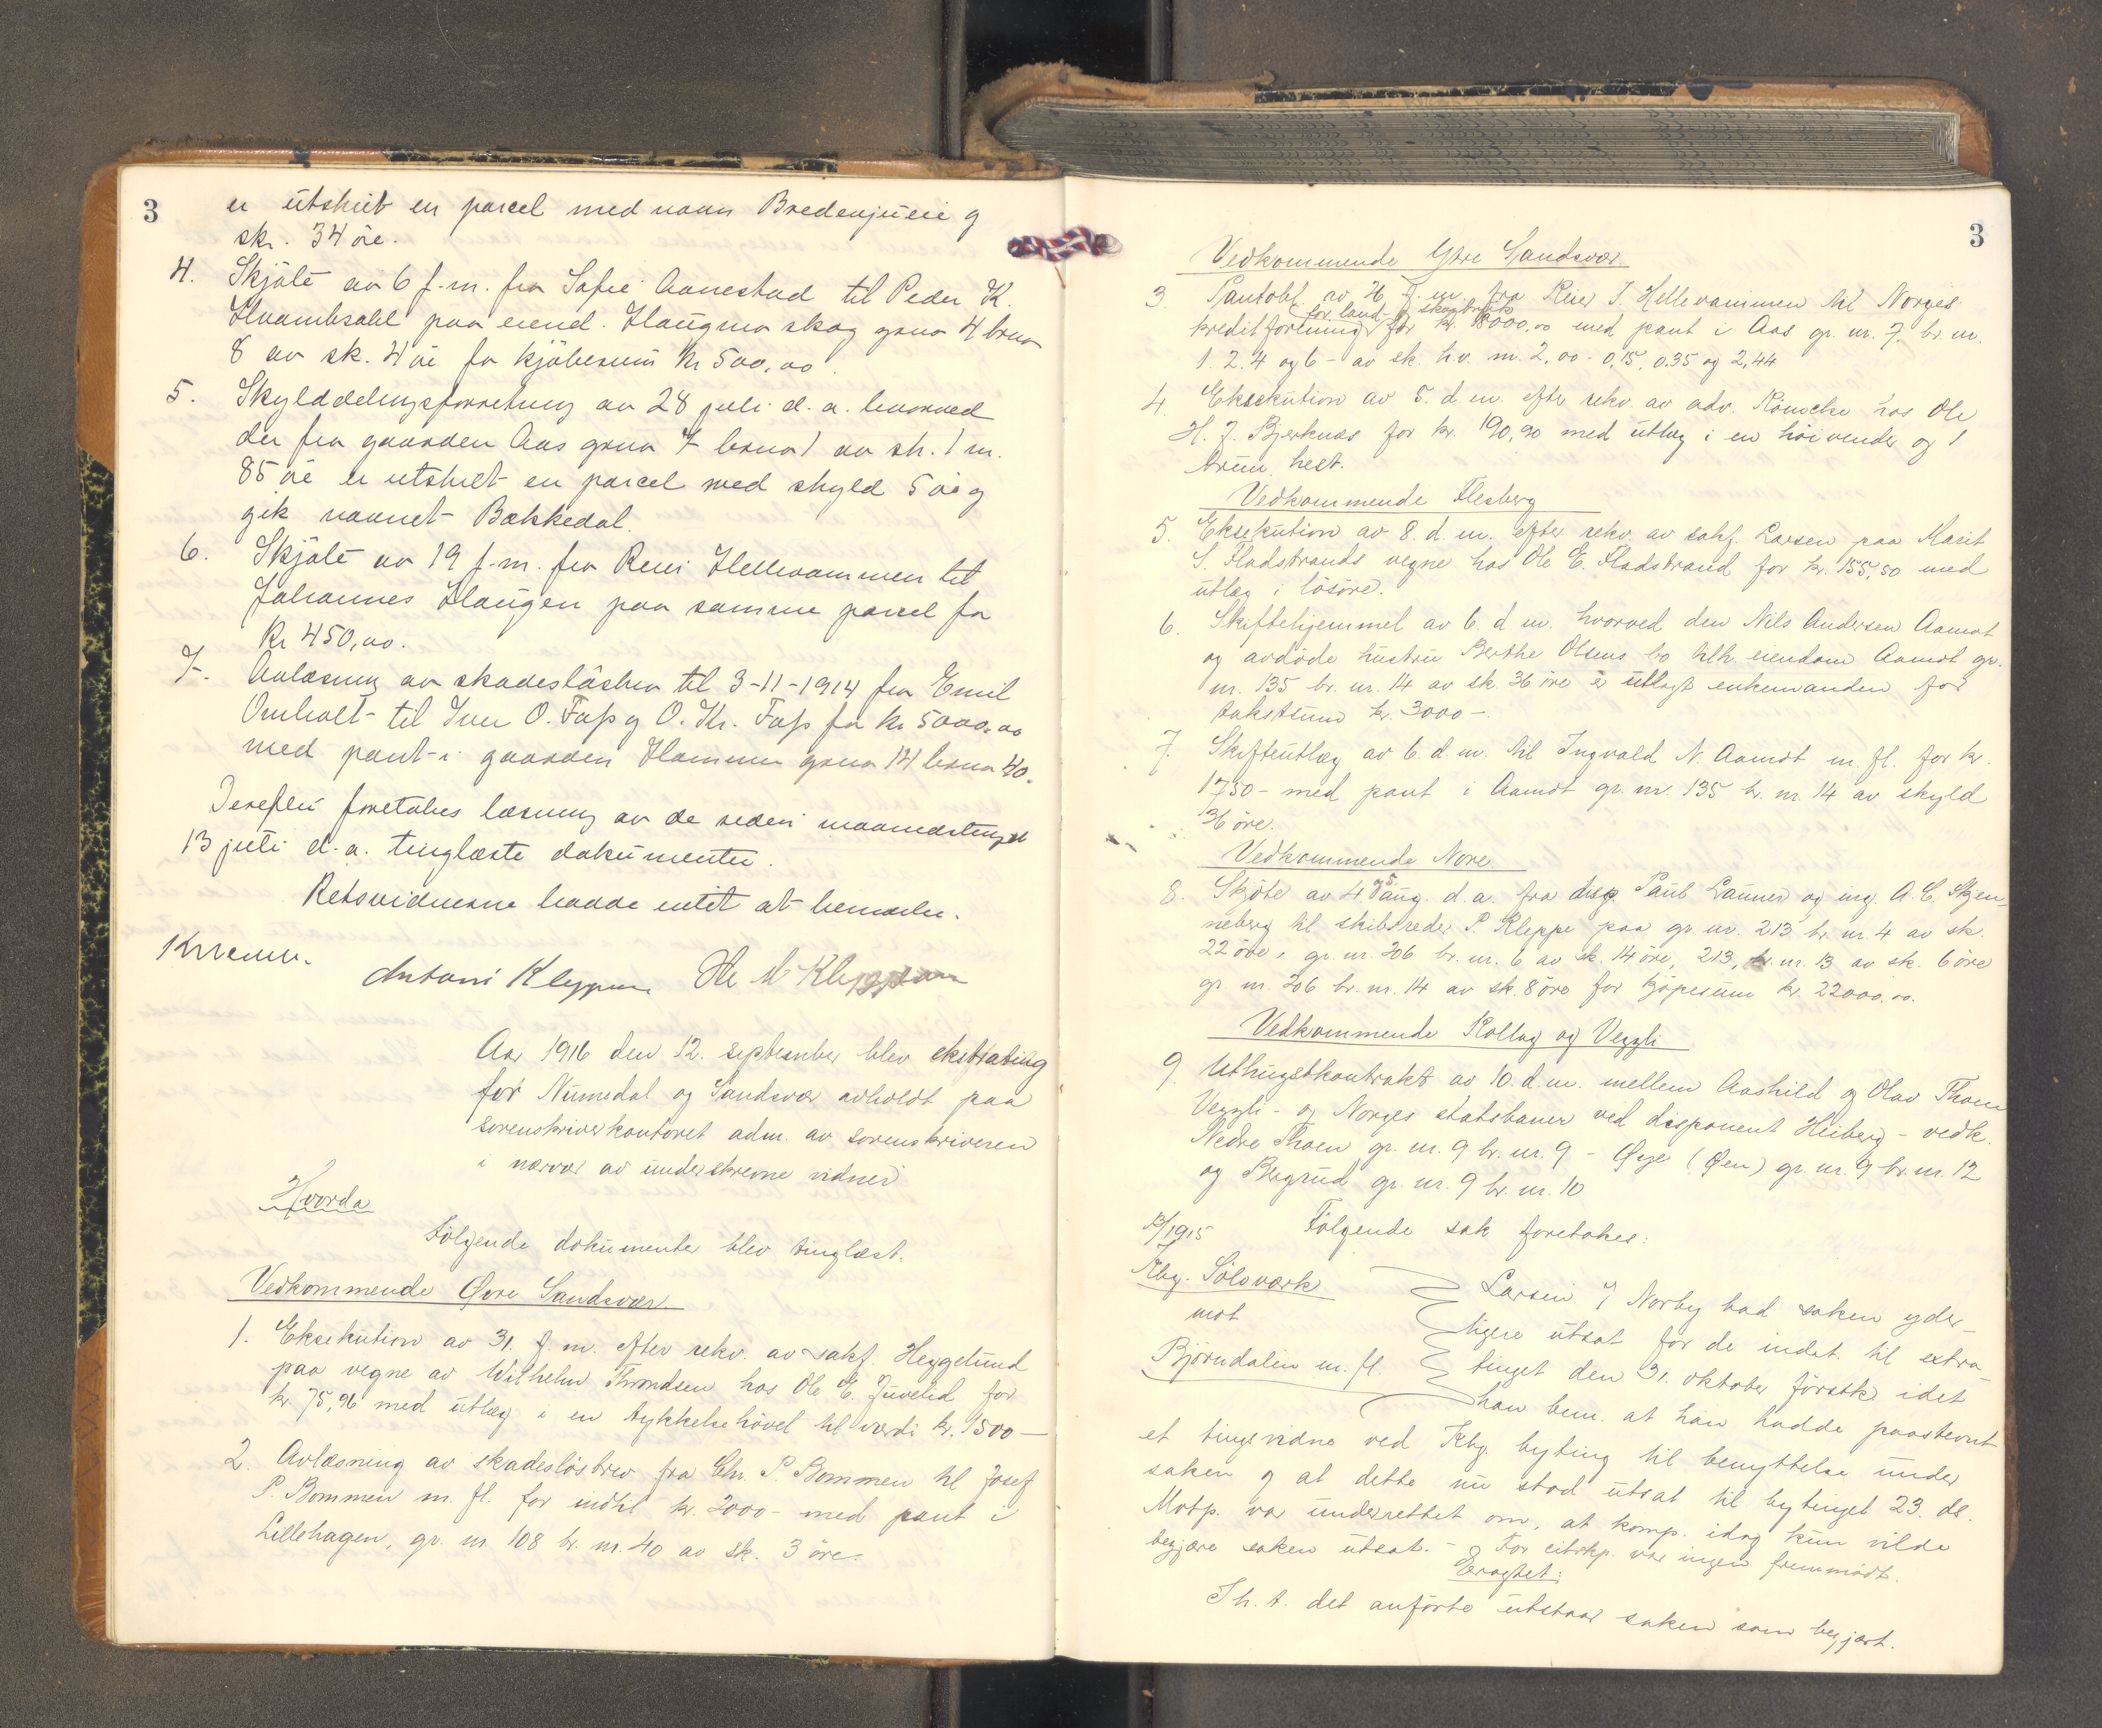 3
er utskilt en parcel med navn Bredenjueie g
sk. 34 öre.
4. Skjöte av 6 f.m. fra Sofie Aanestad til Peder K.
Hvambsahl paa eiend. Haugmo skog grno 4 brno
8 av sk. 4 öre for kjöbesum Kr 500,00.
5. Skylddelingsforretning av 28 juli d.a. hvorved
der fra gaarden Aas grno 7 brno 1 av sk. 1 m.
85 öre er utskilt en parcel med skyld 5 öre og
gik navnet Bækkedal.
6. Skjöte av 19 f.m. fra Reier Hellevammen til
Johannes Haugen paa samme parcel for
Kr 450,00.
7. Avlæsning av skadeslösbrev til 3-11-1914 fra Emil
Omholt til Iver O. Fossg O. Kr. Foss for kr 5000,00
med pant i gaarden Hammer grno 14 brno 40.
Derefter foretokes læsning av de siden maanedstinget
13 juli d.a. tinglæste dokumenter.
Retsvidnerne hadde intet at bemærke.
Antoni Kleppen Ole M Kleppen
Aar 1916 den 12. september blev ekstrating
for Numedal og Sandsvær avholdt paa
sorenskriverkontoret adm. av sorenskriveren
i nærvær av underskrevne vidner
Hvorda
Følgende dokumenter blev tinglæst:
Vedkommende Øvre Sandsvær
1. Eksekution av 31. f.m. efter rekv. av sakf. Heggelund
paa vegne av Wilhelm Throndsen hos Ole E. Juvelid for
kr. 75,96 med utlæg i en tykkelsehövel til værdi kr. 1500 —
2. Avlæsning av skadeslösbrev fra Chr. P. Bommen til Josef
P. Bommen m.fl. for indtil kr. 2000 - med pant i
Lillehagen, gr. nr. 108 br. nr. 40 av sk. 3 öre.
3
Vedkommende Ytre Sandsvær.
3. Pantobl. av f.m. fra Reier T. Hellevammen til Norges
for land- og skogbruk
kreditforening for kr. 18000,00 med pant i Aas gr. nr. 7. br. nr.
1. 2. 4 og 6 - av sk. hv. m. 2,00 - 0,15, 0,35 og 2,44
4. Eksekution av 5. d.m. efter rekv. av adv. Rönneke hos Ole
H. J. Bjerknæs for kr. 190,90 med utlæg i en höivender og 1
brun hest.
Vedkommende Flesberg
5. Eksekution av 8. d.m. efter rekv. av sakf. Larsen paa Marit
S. Fladstrands vegne hos Ole E. Fladstrand for kr. 155,50 med
utlæg i lösöre.
6. Skiftehjemmel av 6. d.m. hvorved den Nils Andersen Aamot
og avdöde hustru Berthe Olsens bo tilh. eiendom Aamot gr.
nr. 135 br. nr. 14 av sk. 36 öre er utlagt enkemanden for
takstsum kr. 3000 -.
7. Skifteutlæg av 6. d.m. til Ingvald N. Aamot m.fl. for kr.
1750 - med pant i Aamot gr. nr. 135 br. nr. 14 av skyld
36 öre.
Vedkommende Nore.
8. Skjöte av 4. og 5. aug. d.a. fra disp. Paul Launer og ing. A. C. Skjen-
neberg til skibsreder P. Kleppe paa gr. nr. 213 br. nr. 4 av sk.
22 öre, gr. nr. 206 br. nr. 6 av sk. 14 öre, 213, br. nr. 13 av sk. 6 öre
gr nr. 206 br. nr. 14 av sk. 8 öre for kjöpesum kr. 22000,00.
Vedkommende Rollag og Veggli
9. Uthugstkontrakt av 10. d.m. mellem Aashild og Olav Thoen
Veggli - og Norges statsbaner ved disponent Heiberg - vedk.
Nedre Thoen gr. nr. 9 br. nr. 9 - Øyje (Øen) gr. nr. 9 br. nr. 12
og Bergrud gr. nr. 9 br. nr. 10
13/1915 Fölgende sak foretokes:
Kbg. Sölvværk
mot
Björndalen m.fl.
Larsen / Norby bad saken yder-
ligere utsat for de indst. til extra-
tinget den 31. oktober förstk. idet
han bem. at han hadde paastevnt
et tingsvidne ved Kbg. byting til benyttelse under
saken og at dette nu stod utsat til bytinget 23. ds.
Motp. var underrettet om, at komp. idag kun vilde
begjære saken utsat. - For citskp. var ingen fremmödt.
Eragtet:
I h. t. det anförte utstaar saken som begjært.